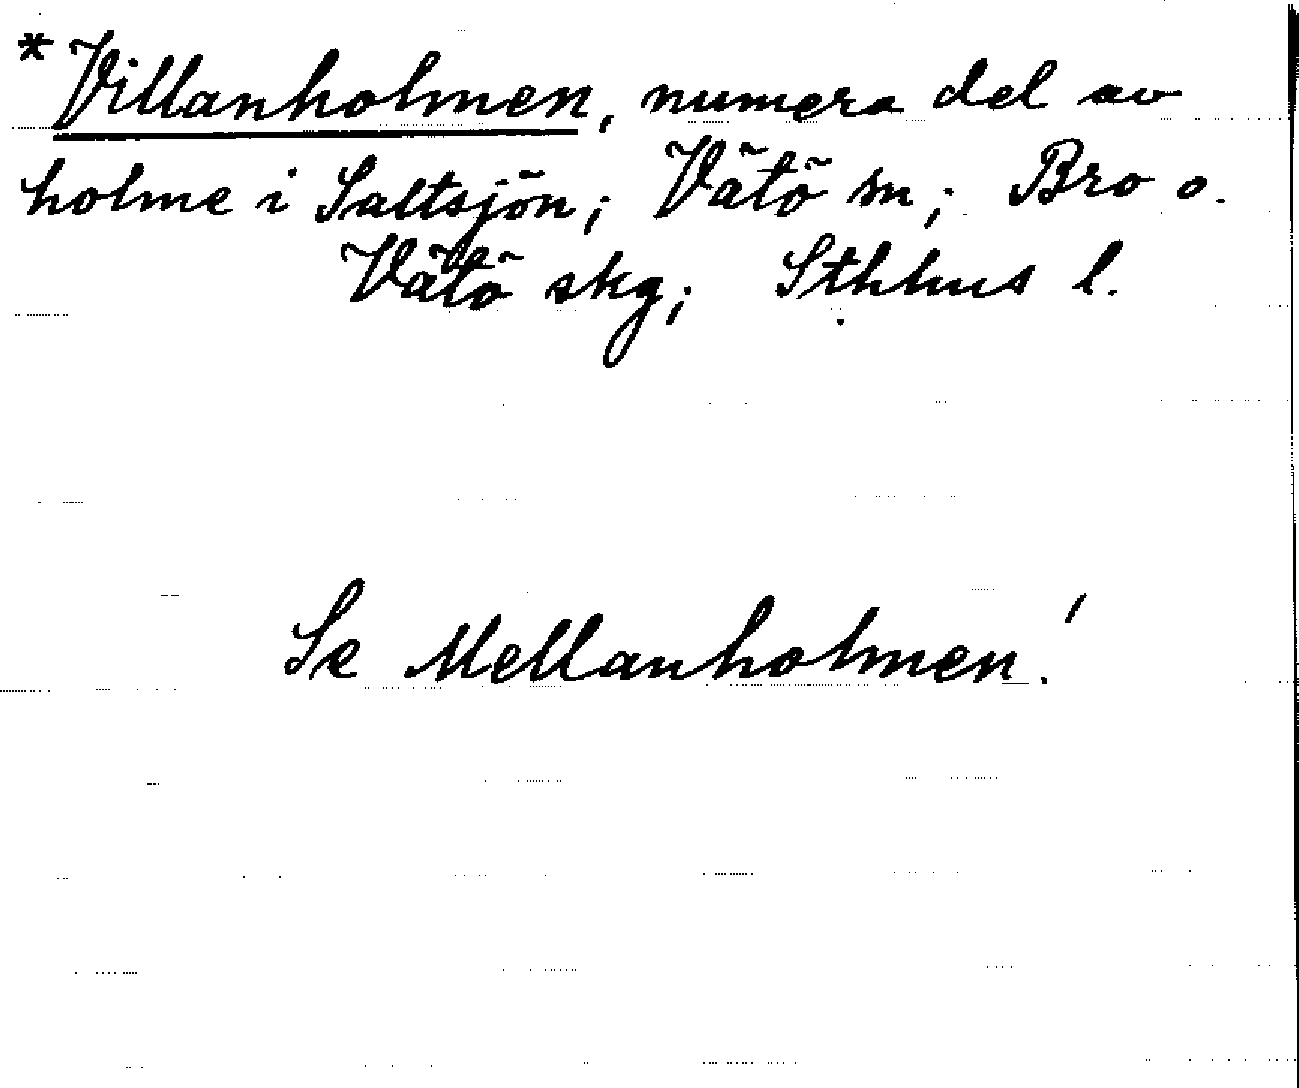 *Villanholmen, numera del av
holme i Saltsjön; Vätö sn; Bro o.
Vätö skg; Sthhus l.
Se Mellanholmen!